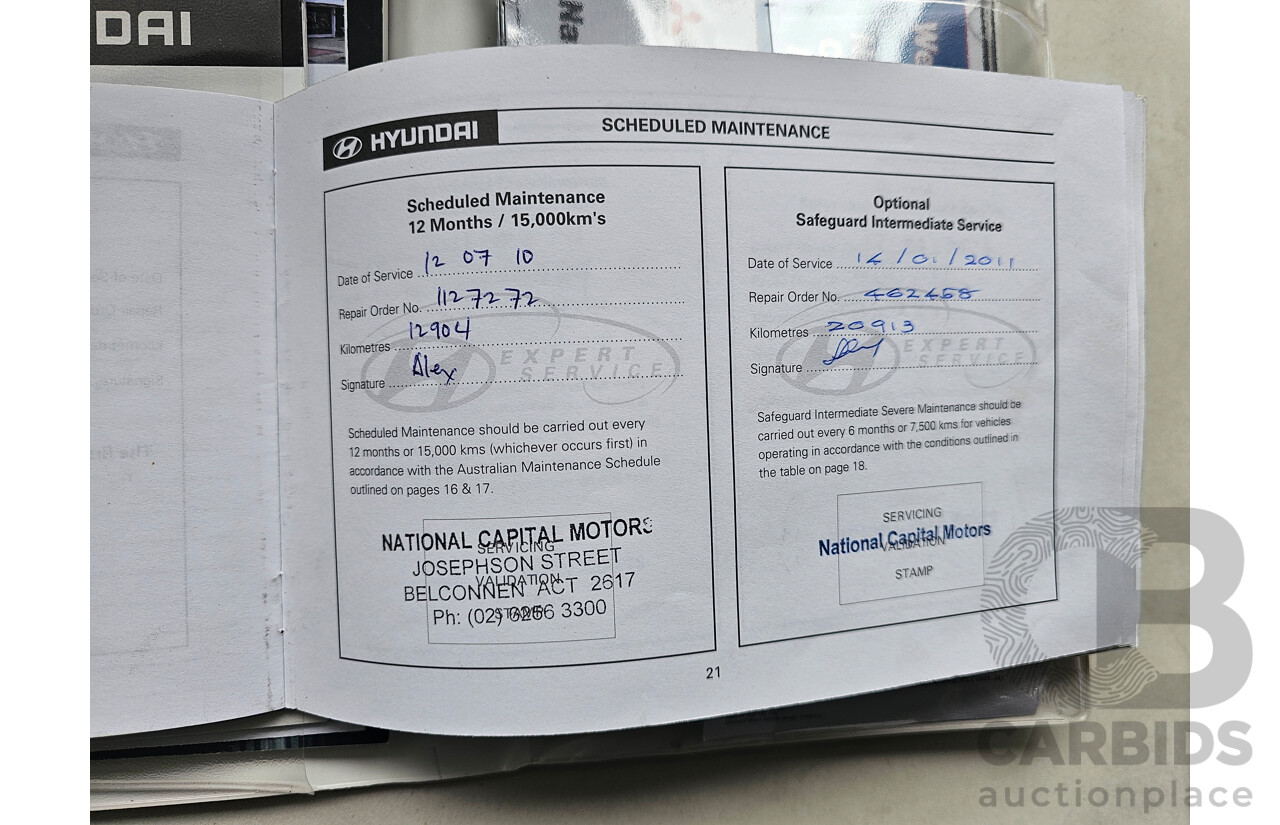 DAI
HYUNDAI
SCHEDULED MAINTENANCE
Scheduled Maintenance
12 Months / 15,000km's
Date of Service 12 07 10
Repair Order No. 1127272
Kilometres 12904
Signature Alex
EXPERT
SERVICE
Scheduled Maintenance should be carried out every
12 months or 15,000 kms (whichever occurs first) in
accordance with the Australian Maintenance Schedule
outlined on pages 16 & 17.
NATIONAL CAPITAL MOTORS
SERVICING
JOSEPHSON STREET
VALIDATION
BELCONNEN ACT 2617
STAMP
Ph: (02) 6256 3300
Optional
Safeguard Intermediate Service
Date of Service 14/01/2011
Repair Order No. 462458
Kilometres 20913
Signature
EXPERT
SERVICE
Safeguard Intermediate Severe Maintenance should be
carried out every 6 months or 7,500 kms for vehicles
operating in accordance with the conditions outlined in
the table on page 18.
SERVICING
National Capital Motors
VALIDATION
STAMP
21
CARBIDS
auctionplace